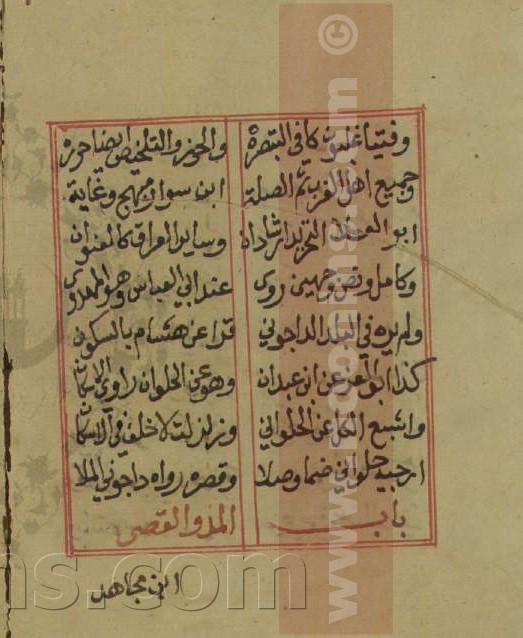 وفتيا غلبون كافي التبصرة والحوز والتلخيص ايضا حرره
وجميع اهل الغرب ثم الصلة ابن سوار مبهج وغاية
ابو العطار التجريد ارشادان وساير العراق كالعنوان
وكامل ونص وجهين روى عند ابي العباس وهو المهدوي
ولم يره في البلد الداجوني قرا عن هشام بالسكون
كذا ابوالعز عن ابن عبدان وهو عن الحلوان راوي الاسكان
واشبع الكل عن الحلواني وزلزلت لا خلف في الاسكان
ارجيه حلواني ضما وصلا وقصره رواه داجوني الملا
باب المد والقصر
ابن مجاهد